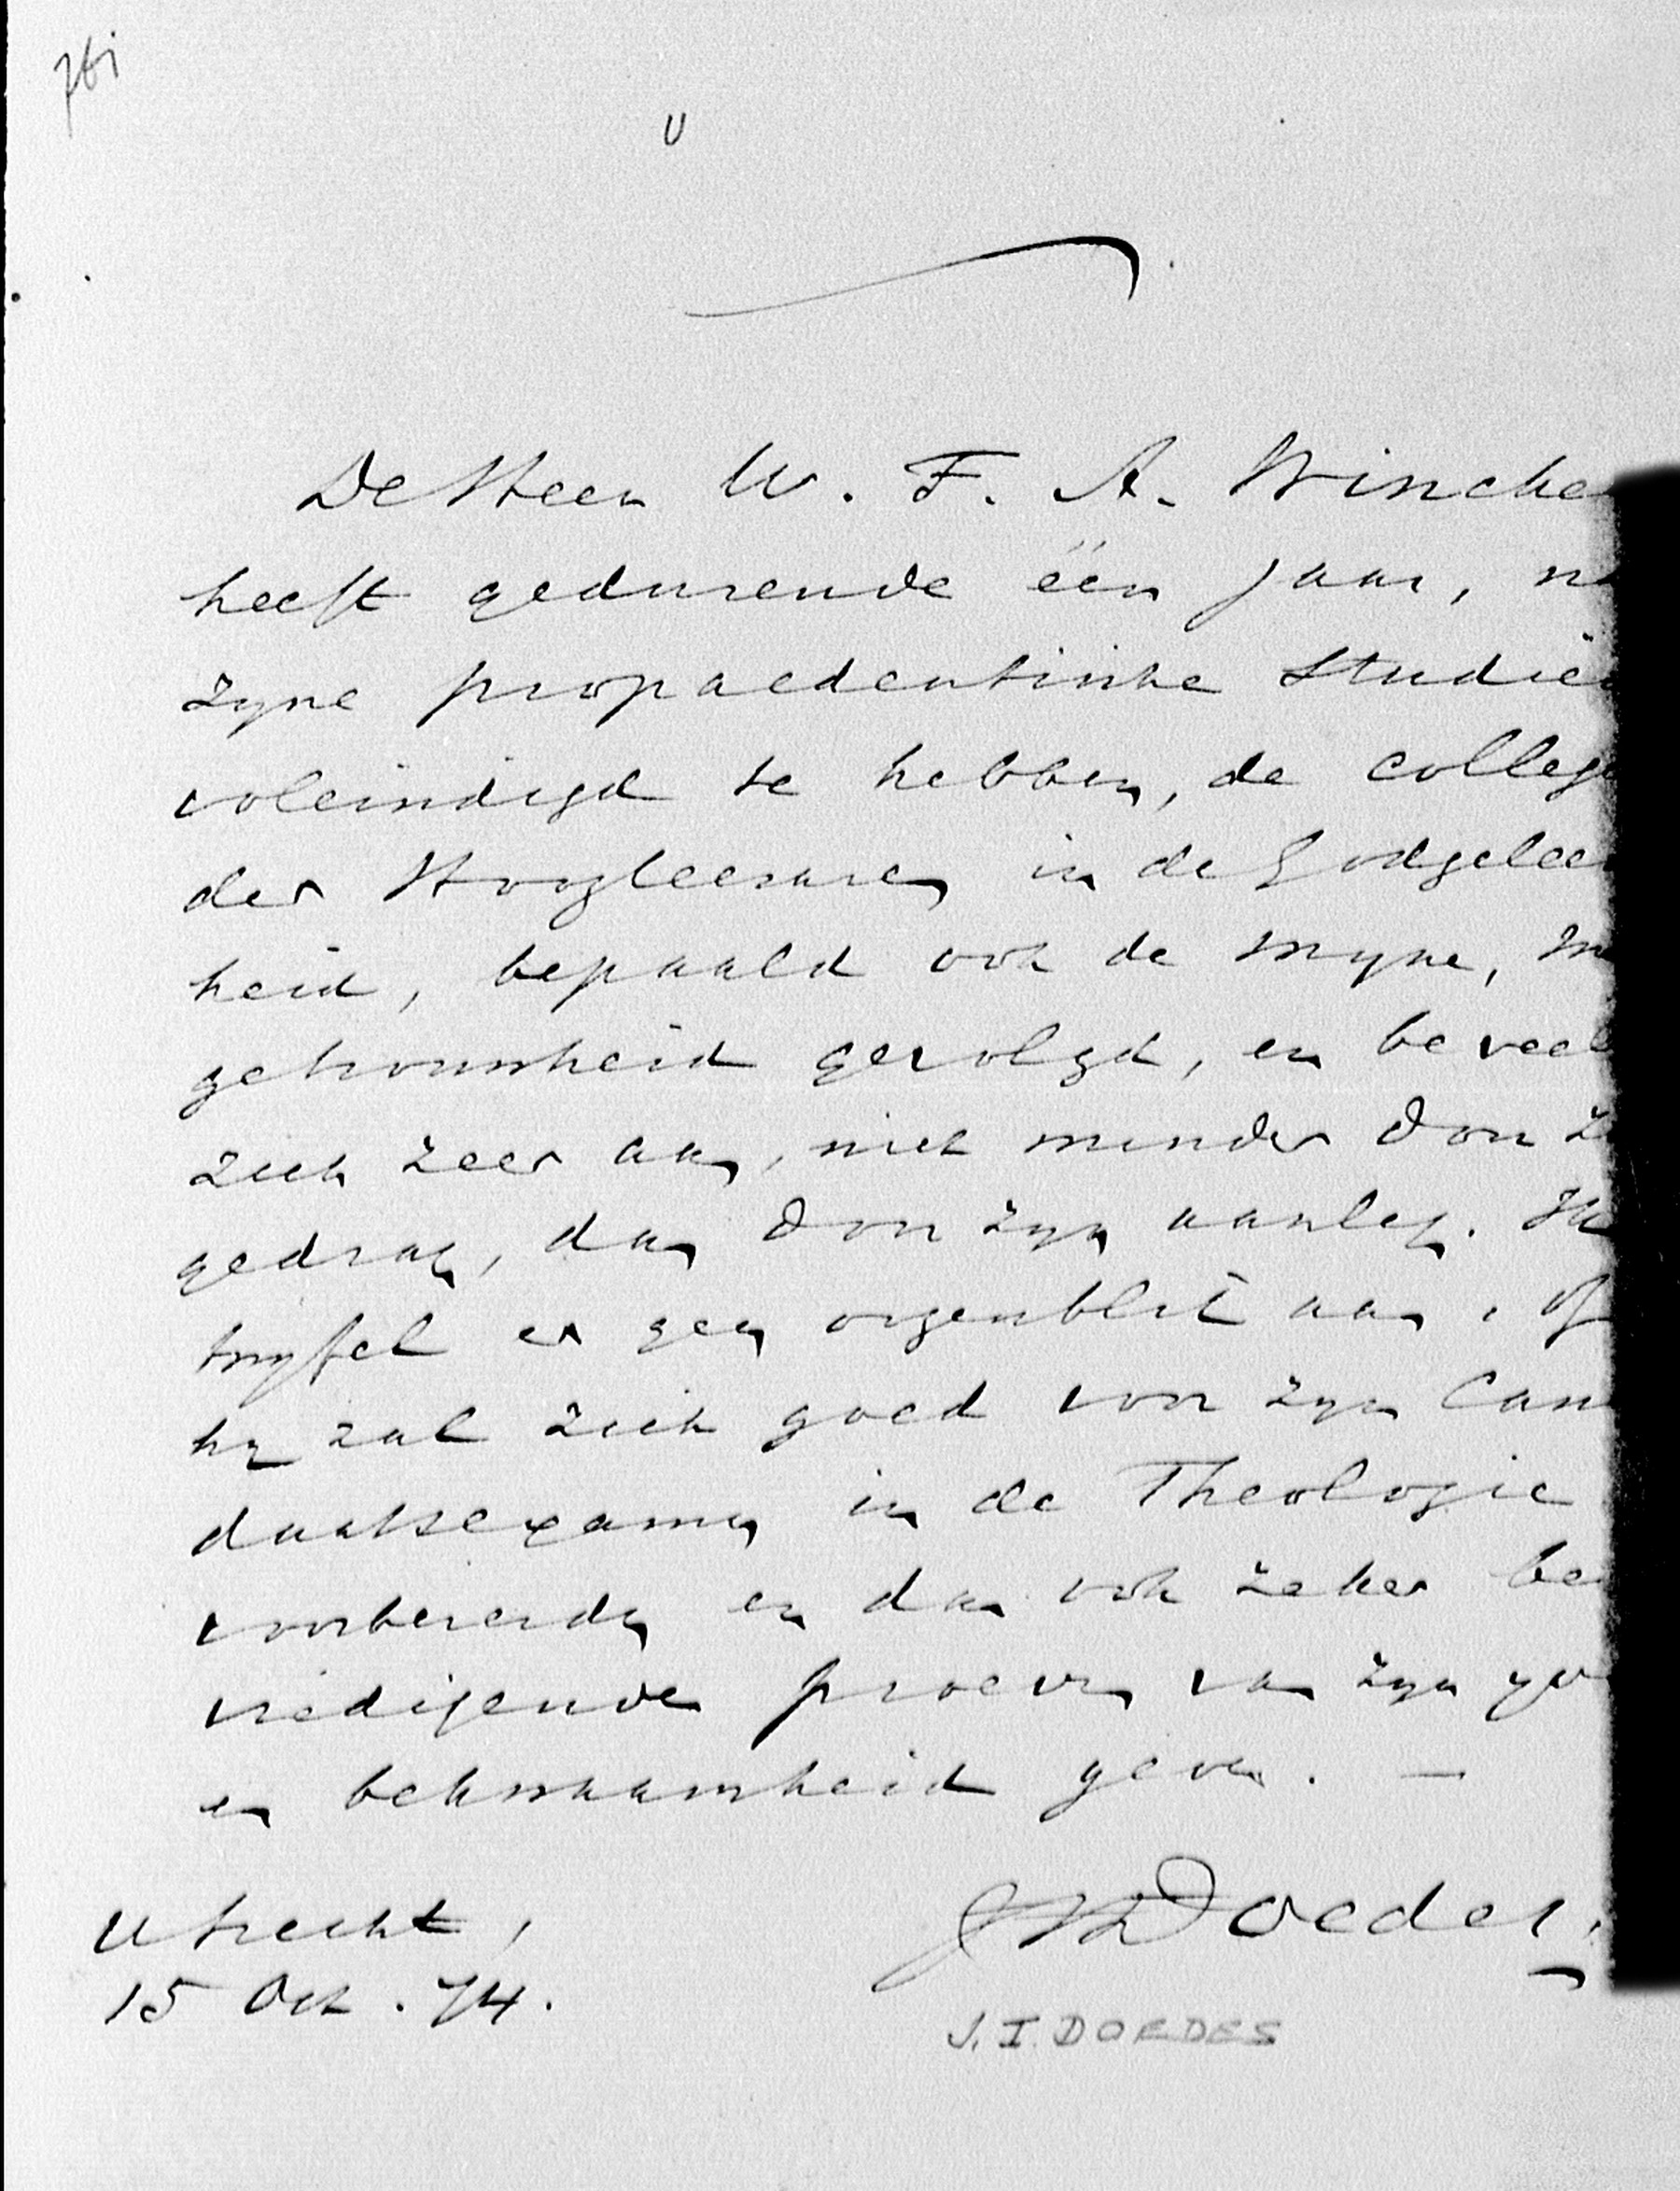 De Heer W. F. A. Winche
heeft gedurende één jaar, n
zyne propaedeutische Studiën
voleindigd te hebben, de colleg
der Hoogleeraren in de Godgeleer
heid, bepaald ook de myne, m
getrouwheid gevolgd, en beveel
zich zeer aan, niet minder door z
gedrag, dan door zyn aanleg. Ik
twyfel er geen oogenblik aan, of
hy zal zich goed voor zyn Can
daatsexamen in de Theologie
voorbereiden en dan ook zeker be
vredigende proeven van zyn yv
en bekwaamheid geven. —
Utrecht, JIDoedes.
15 Oct. 74.
J. I. DOEDES